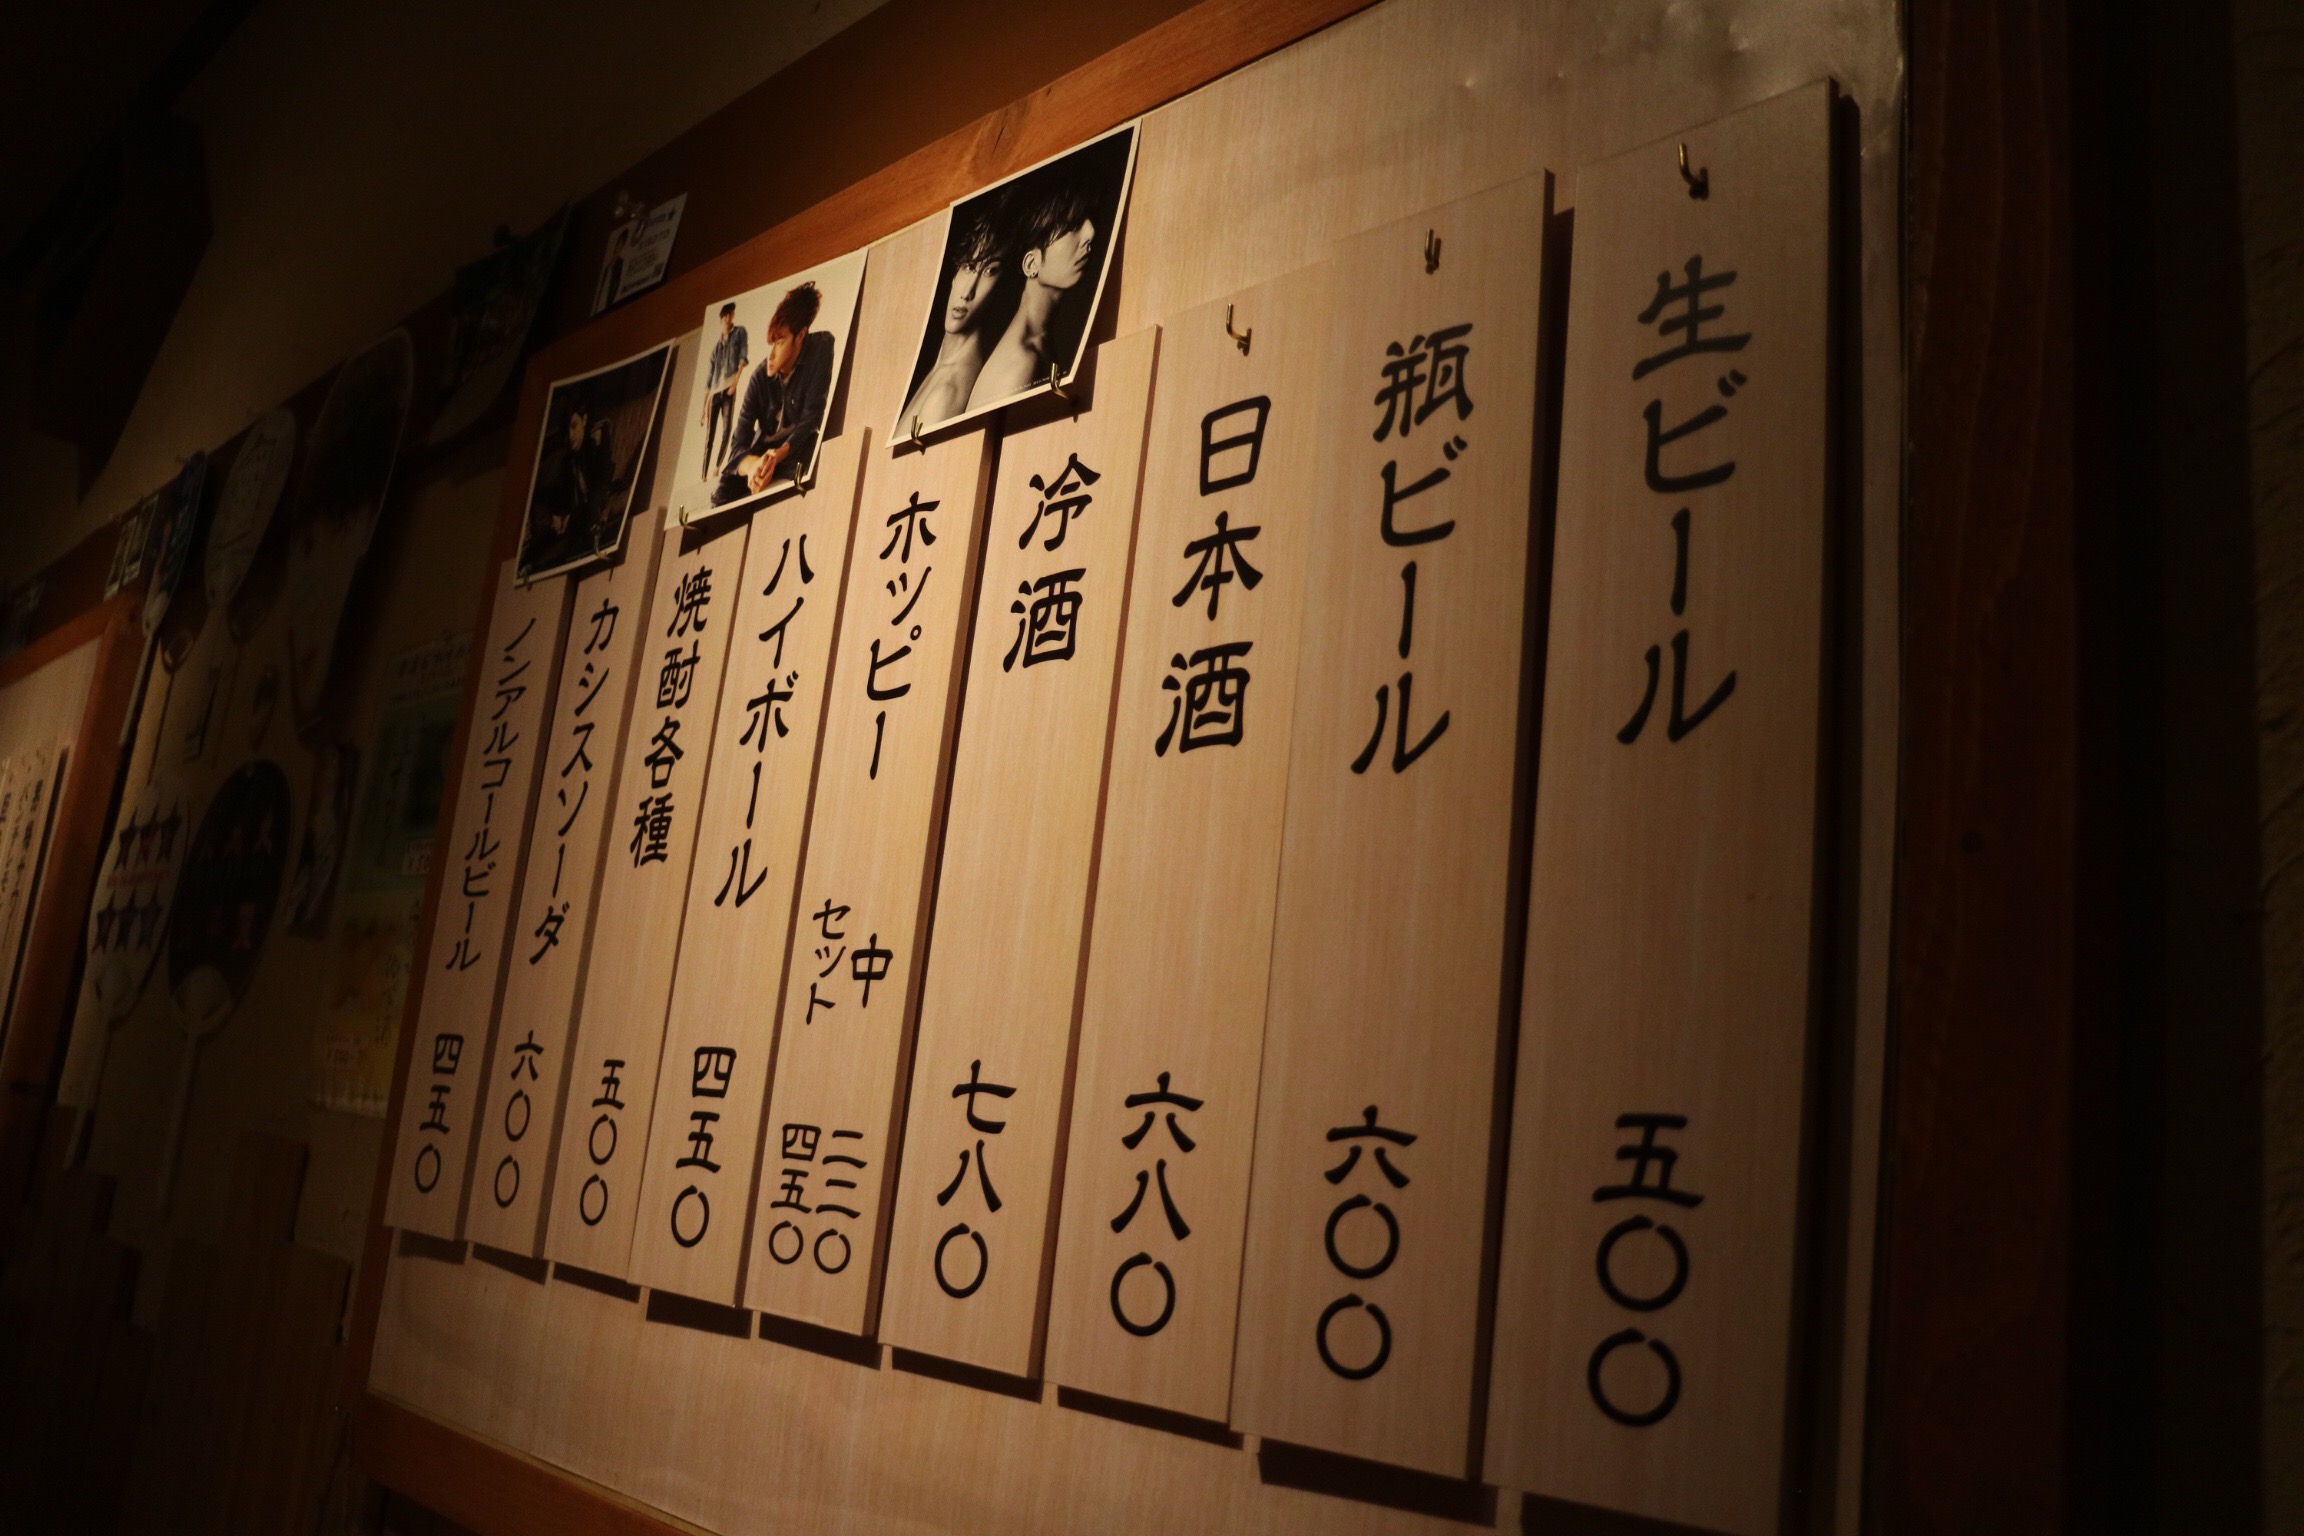 生ビール 五〇〇
瓶ビール 六〇〇
日本酒 六八〇
冷酒 七八〇
ホッピー
中 二二〇
セット 四五〇
ハイボール 四五〇
焼酎各種 五〇〇
カシスソーダ 六〇〇
ノンアルコールビール 四五〇